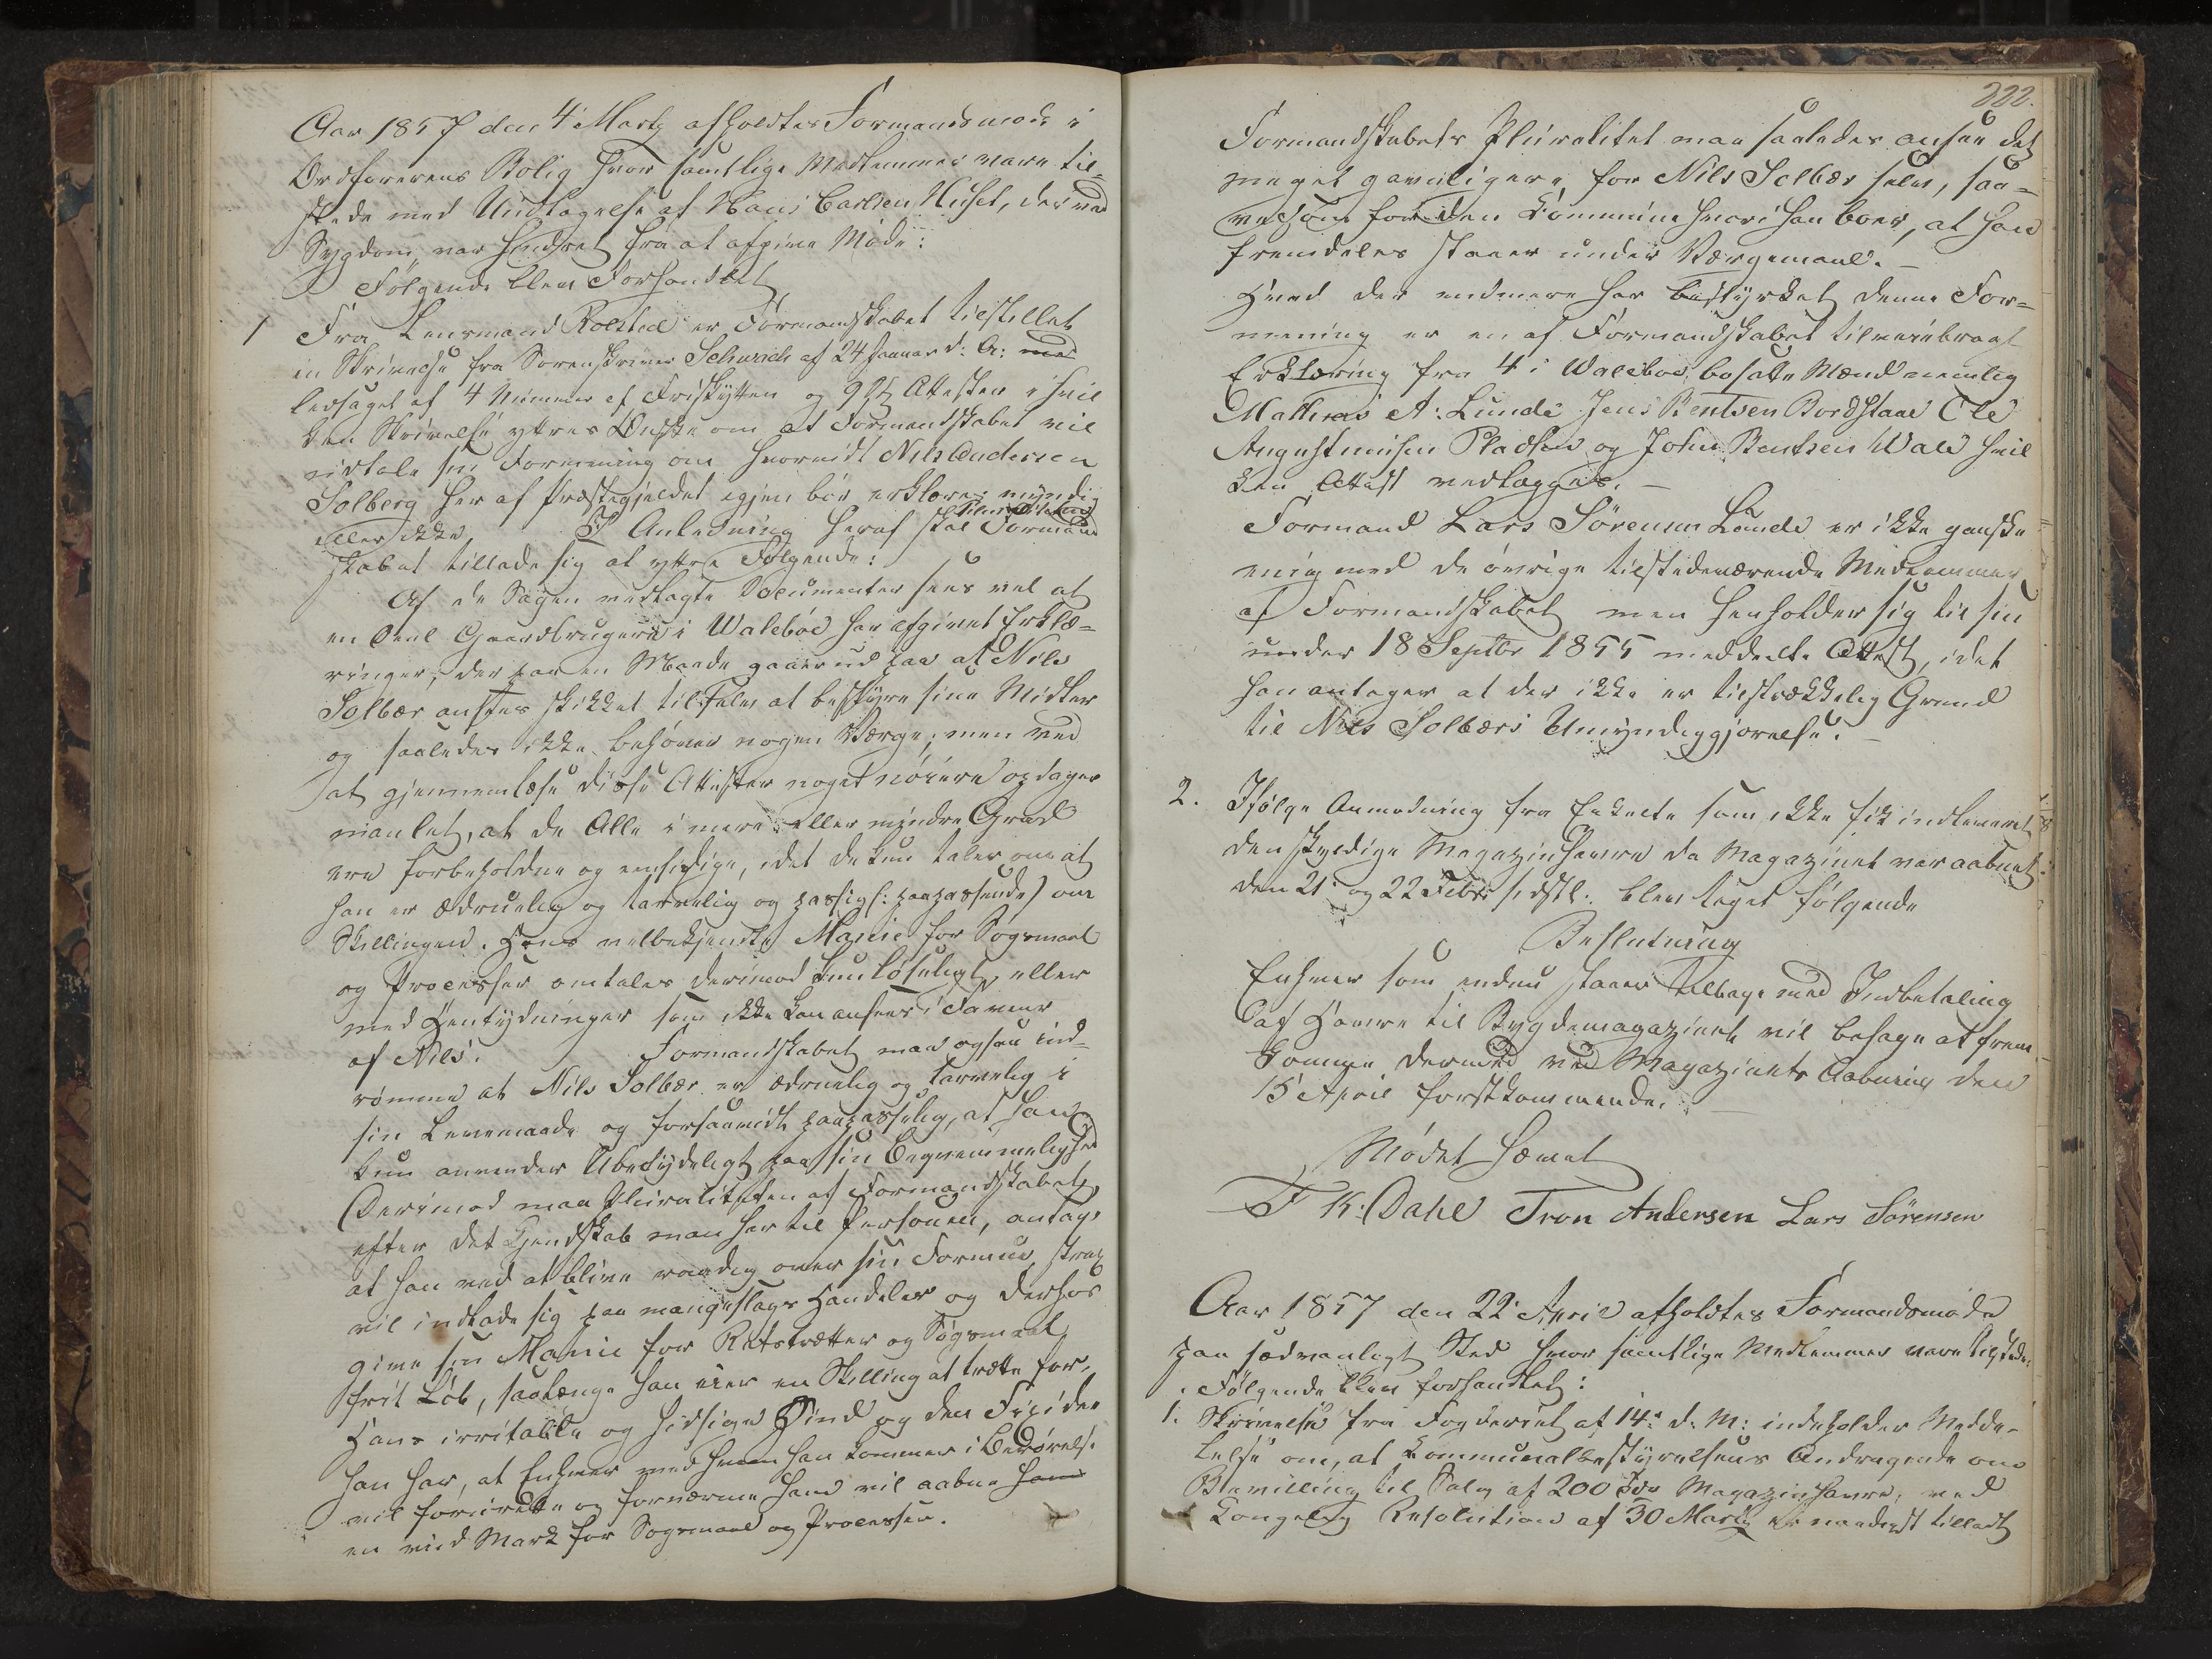 Aar 1857 den 4 Martz afholdtes Formandsmøde i
Ordførerens Bolig hvor samtlige Medlemmer vare til-
stede med Undtagelse af Hans Carlsen Huset, der ved
Sygdom var hindret fra at afgive Møde:
Følgende blev Forhandlet
1 Fra Lensmand Rolsted er Formandskabet tilstillet
en Skrivelse fra Sorenskriver Schwach af 24 Januar d: A:
ledsaget af 4 Nummer af Friskytten og 9 Attester i hvil
ken Skrivelse yttres Ønske om at Formandskabet vil
udtale sin Formening om hvorvidt Nils Andersen
Solberg her af Præstegjeldet igjen bør erklæres myndig
eller ikke. I Anledning heraf skal Formand
skabet tillade sig at yttre Følgende:
Af de Sagen vedlagte Documenter sees vel at
en Deel Gaardbrugere i Walebøe har afgivet Erklæ-
ringer, der paa en Maade gaaer ud paa at Nils
Solbær ansees skikket til selv at bestyre sine Midler
og saaledes ikke behøver nogen Værge; men ved
at gjennemlæse disse Attester noget nøiere opdager
man let, at de Alle i mere eller mindre Grad
ere forbeholdne og eensidige, idet de kun taler om at
han er ædruelig og tarvelig og passig (: paapassende) om
Skillingen. Hans velbekjendte Manie for Søgsmaal
og Processer omtales derimod kun løseligt eller
med Hentydninger som ikke kan ansees i Faveur
af Nils. Formandskabet maa ogsaa ind-
rømme at Nils Solbær er ædruelig og tarvelig i
sin Levemaade og forsaavidt paapasselig, at han
kun anvender Ubetydeligt paa sin Beqvemmelighed
Derimod maa Pluraliteten af Formandskabet,
efter det Kjendskab man har til Personen, antage
at han ved at blive raadig over sin Formue, strax
vil indlade sig paa mangeslags Handeler og derhos
give sin Manie for Retstrætter og Søgsmaal
frit Løb, saalænge han eier en Skilling at trætte for.
Hans irritable og hidsige Sind og den Fixidee
han har, at Enhver med hvem han kommer i Berørelse
vil forurette og fornærme ham vil aabne ham
en viid Mark for Søgsmaal og Processer.
222.
Formandskabets Pluralitet maa saaledes ansee det
meget gavnligere for Nils Solbær selv, saa-
velsom for den Kommune hvori han boer, at han
fremdeles staaer under Værgemaal.
Hvad der endmere har bestyrket denne For-
mening er en af Formandskabet tilveiebragt
Erklæring fra 4 i Walebøe bosatte Mænd nemlig
Mathias A: Lunde Jens Bentsen Bordstaae Ole
Augustinusen Pladsen og John Bentsen Wale hvil
ken Attest vedlægges.
Formand Lars Sørensen Lunde er ikke ganske
enig med de øvrige tilstedeværende Medlemmer
af Formandskabet men henholder sig til sin
under 18 Septbr 1855 meddeelte Attest, idet
han antager at der ikke er tilstrækkelig Grund
til Nils Solbærs Umyndiggjørelse.
2. Ifølge Anmodning fra Enkelte som ikke fik indleveret
den skyldige Magazinhavre da Magazinet var aabnet
den 21 og 22 Febr sidstl: blev taget følgende
Beslutning
Enhver som endnu staaer tilbage med Indbetaling
af Havre til Bygdemagazinet vil behage at frem
komme dermed ved Magazinets Aabning den
15 April førstkommende.
Mødet Hævet
F K: Dahl Tron Andersen Lars Sørensen
Aar 1857 den 22 April afholdtes Formandsmøde
paa sædvanligt Sted hvor samtlige Medlemmer vare tilstede.
Følgende blev forhandlet:
1. Skrivelse fra Fogderiet af 14: d: M: indeholder Medde-
lelse om, at Kommunalbestyrelsens Andragende om
Bevilling til Salg af 200 Tdr Magazinhavre, ved
Kongelig Resolution af 30 Martz er naadigst tilladt